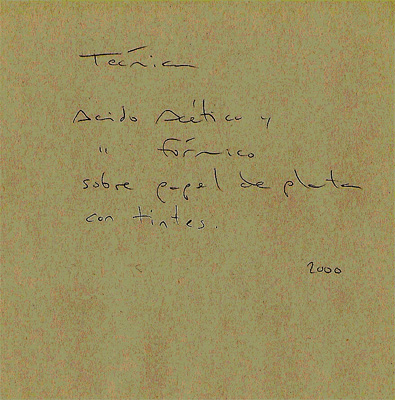 Técnica
Acido Acético y
" fórmico
sobre papel de plata
con tintes.
2000